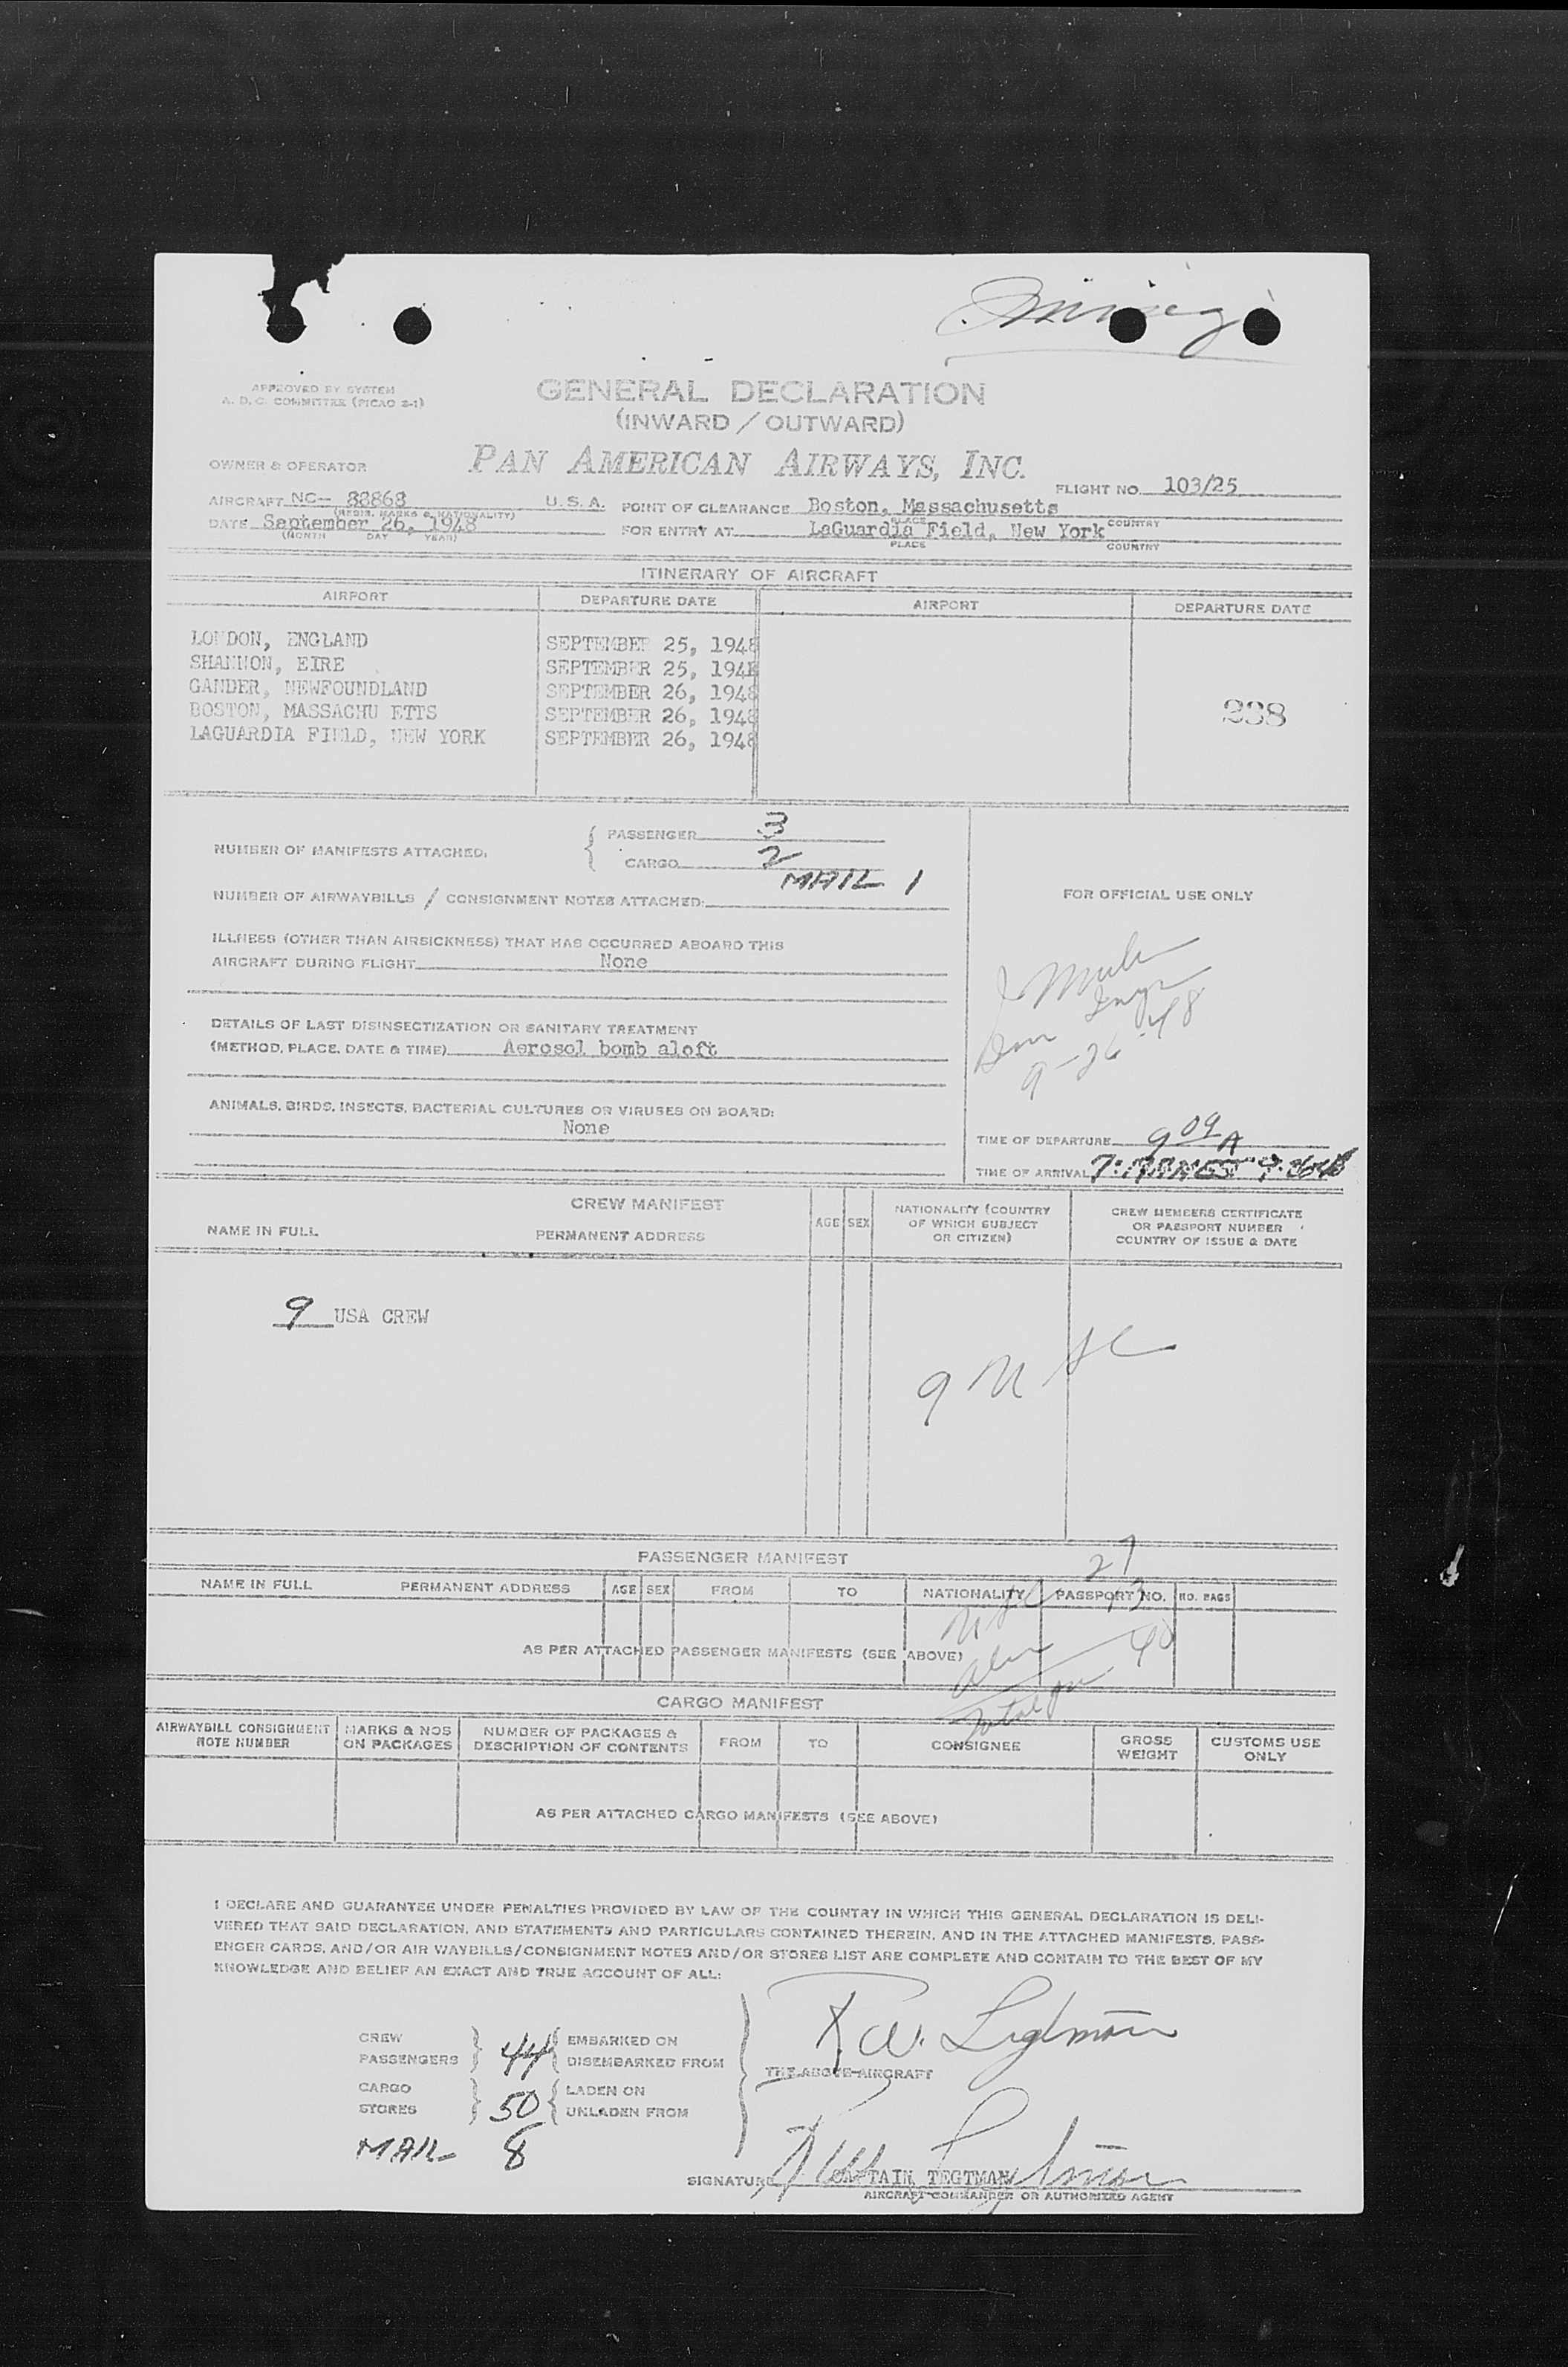 APPROVED BY SYSTEM
A. D. C. COMMITTEE (PICAO 2-1)
GENERAL DECLARATION
(INWARD / OUTWARD)
OWNER & OPERATOR
PAN AMERICAN AIRWAYS, INC.
FLIGHT NO. 103/25
AIRCRAFT NC-- 88868 U. S. A.
(REGIS. MARKS & NATIONALITY)
POINT OF CLEARANCE Boston, Massachusetts
PLACE COUNTRY
DATE September 26, 1948
(MONTH DAY YEAR)
FOR ENTRY AT LaGuardia Field, New York
PLACE COUNTRY
ITINERARY OF AIRCRAFT
AIRPORT DEPARTURE DATE AIRPORT DEPARTURE DATE
LONDON, ENGLAND SEPTEMBER 25, 1948
SHANNON, EIRE SEPTEMBER 25, 1948
GANDER, NEWFOUNDLAND SEPTEMBER 26, 1948
BOSTON, MASSACHU ETTS SEPTEMBER 26, 1948
238
LAGUARDIA FIELD, NEW YORK SEPTEMBER 26, 1948
NUMBER OF MANIFESTS ATTACHED:
PASSENGER 3
CARGO 2
MAIL 1
NUMBER OF AIRWAYBILLS / CONSIGNMENT NOTES ATTACHED:
FOR OFFICIAL USE ONLY
ILLNESS (OTHER THAN AIRSICKNESS) THAT HAS OCCURRED ABOARD THIS
AIRCRAFT DURING FLIGHT None
DETAILS OF LAST DISINSECTIZATION OR SANITARY TREATMENT
(METHOD, PLACE, DATE & TIME) Aerosol bomb aloft
9-26-48
ANIMALS, BIRDS, INSECTS, BACTERIAL CULTURES OR VIRUSES ON BOARD:
None
TIME OF DEPARTURE 9 09 A
TIME OF ARRIVAL
CREW MANIFEST
NAME IN FULL PERMANENT ADDRESS AGE SEX
NATIONALITY (COUNTRY
OF WHICH SUBJECT
OR CITIZEN)
CREW MEMBERS CERTIFICATE
OR PASSPORT NUMBER
COUNTRY OF ISSUE & DATE
9 USA CREW
9 USC
PASSENGER MANIFEST
27
NAME IN FULL PERMANENT ADDRESS AGE SEX FROM TO NATIONALITY PASSPORT NO. NO. BAGS
USC 13
AS PER ATTACHED PASSENGER MANIFESTS (SEE ABOVE)
40
CARGO MANIFEST
AIRWAYBILL CONSIGNMENT
NOTE NUMBER
MARKS & NOS
ON PACKAGES
NUMBER OF PACKAGES &
DESCRIPTION OF CONTENTS
FROM TO CONSIGNEE
GROSS
WEIGHT
CUSTOMS USE
ONLY
AS PER ATTACHED CARGO MANIFESTS (SEE ABOVE)
I DECLARE AND GUARANTEE UNDER PENALTIES PROVIDED BY LAW OF THE COUNTRY IN WHICH THIS GENERAL DECLARATION IS DELI-
VERED THAT SAID DECLARATION, AND STATEMENTS AND PARTICULARS CONTAINED THEREIN, AND IN THE ATTACHED MANIFESTS, PASS-
ENGER CARDS, AND/OR AIR WAYBILLS/CONSIGNMENT NOTES AND/OR STORES LIST ARE COMPLETE AND CONTAIN TO THE BEST OF MY
KNOWLEDGE AND BELIEF AN EXACT AND TRUE ACCOUNT OF ALL:
CREW
PASSENGERS
44
EMBARKED ON
DISEMBARKED FROM
THE ABOVE AIRCRAFT
CARGO
STORES
50
LADEN ON
UNLADEN FROM
MAIL 8
SIGNATURE CAPTAIN TEGTMAN
AIRCRAFT COMMANDER OR AUTHORIZED AGENT